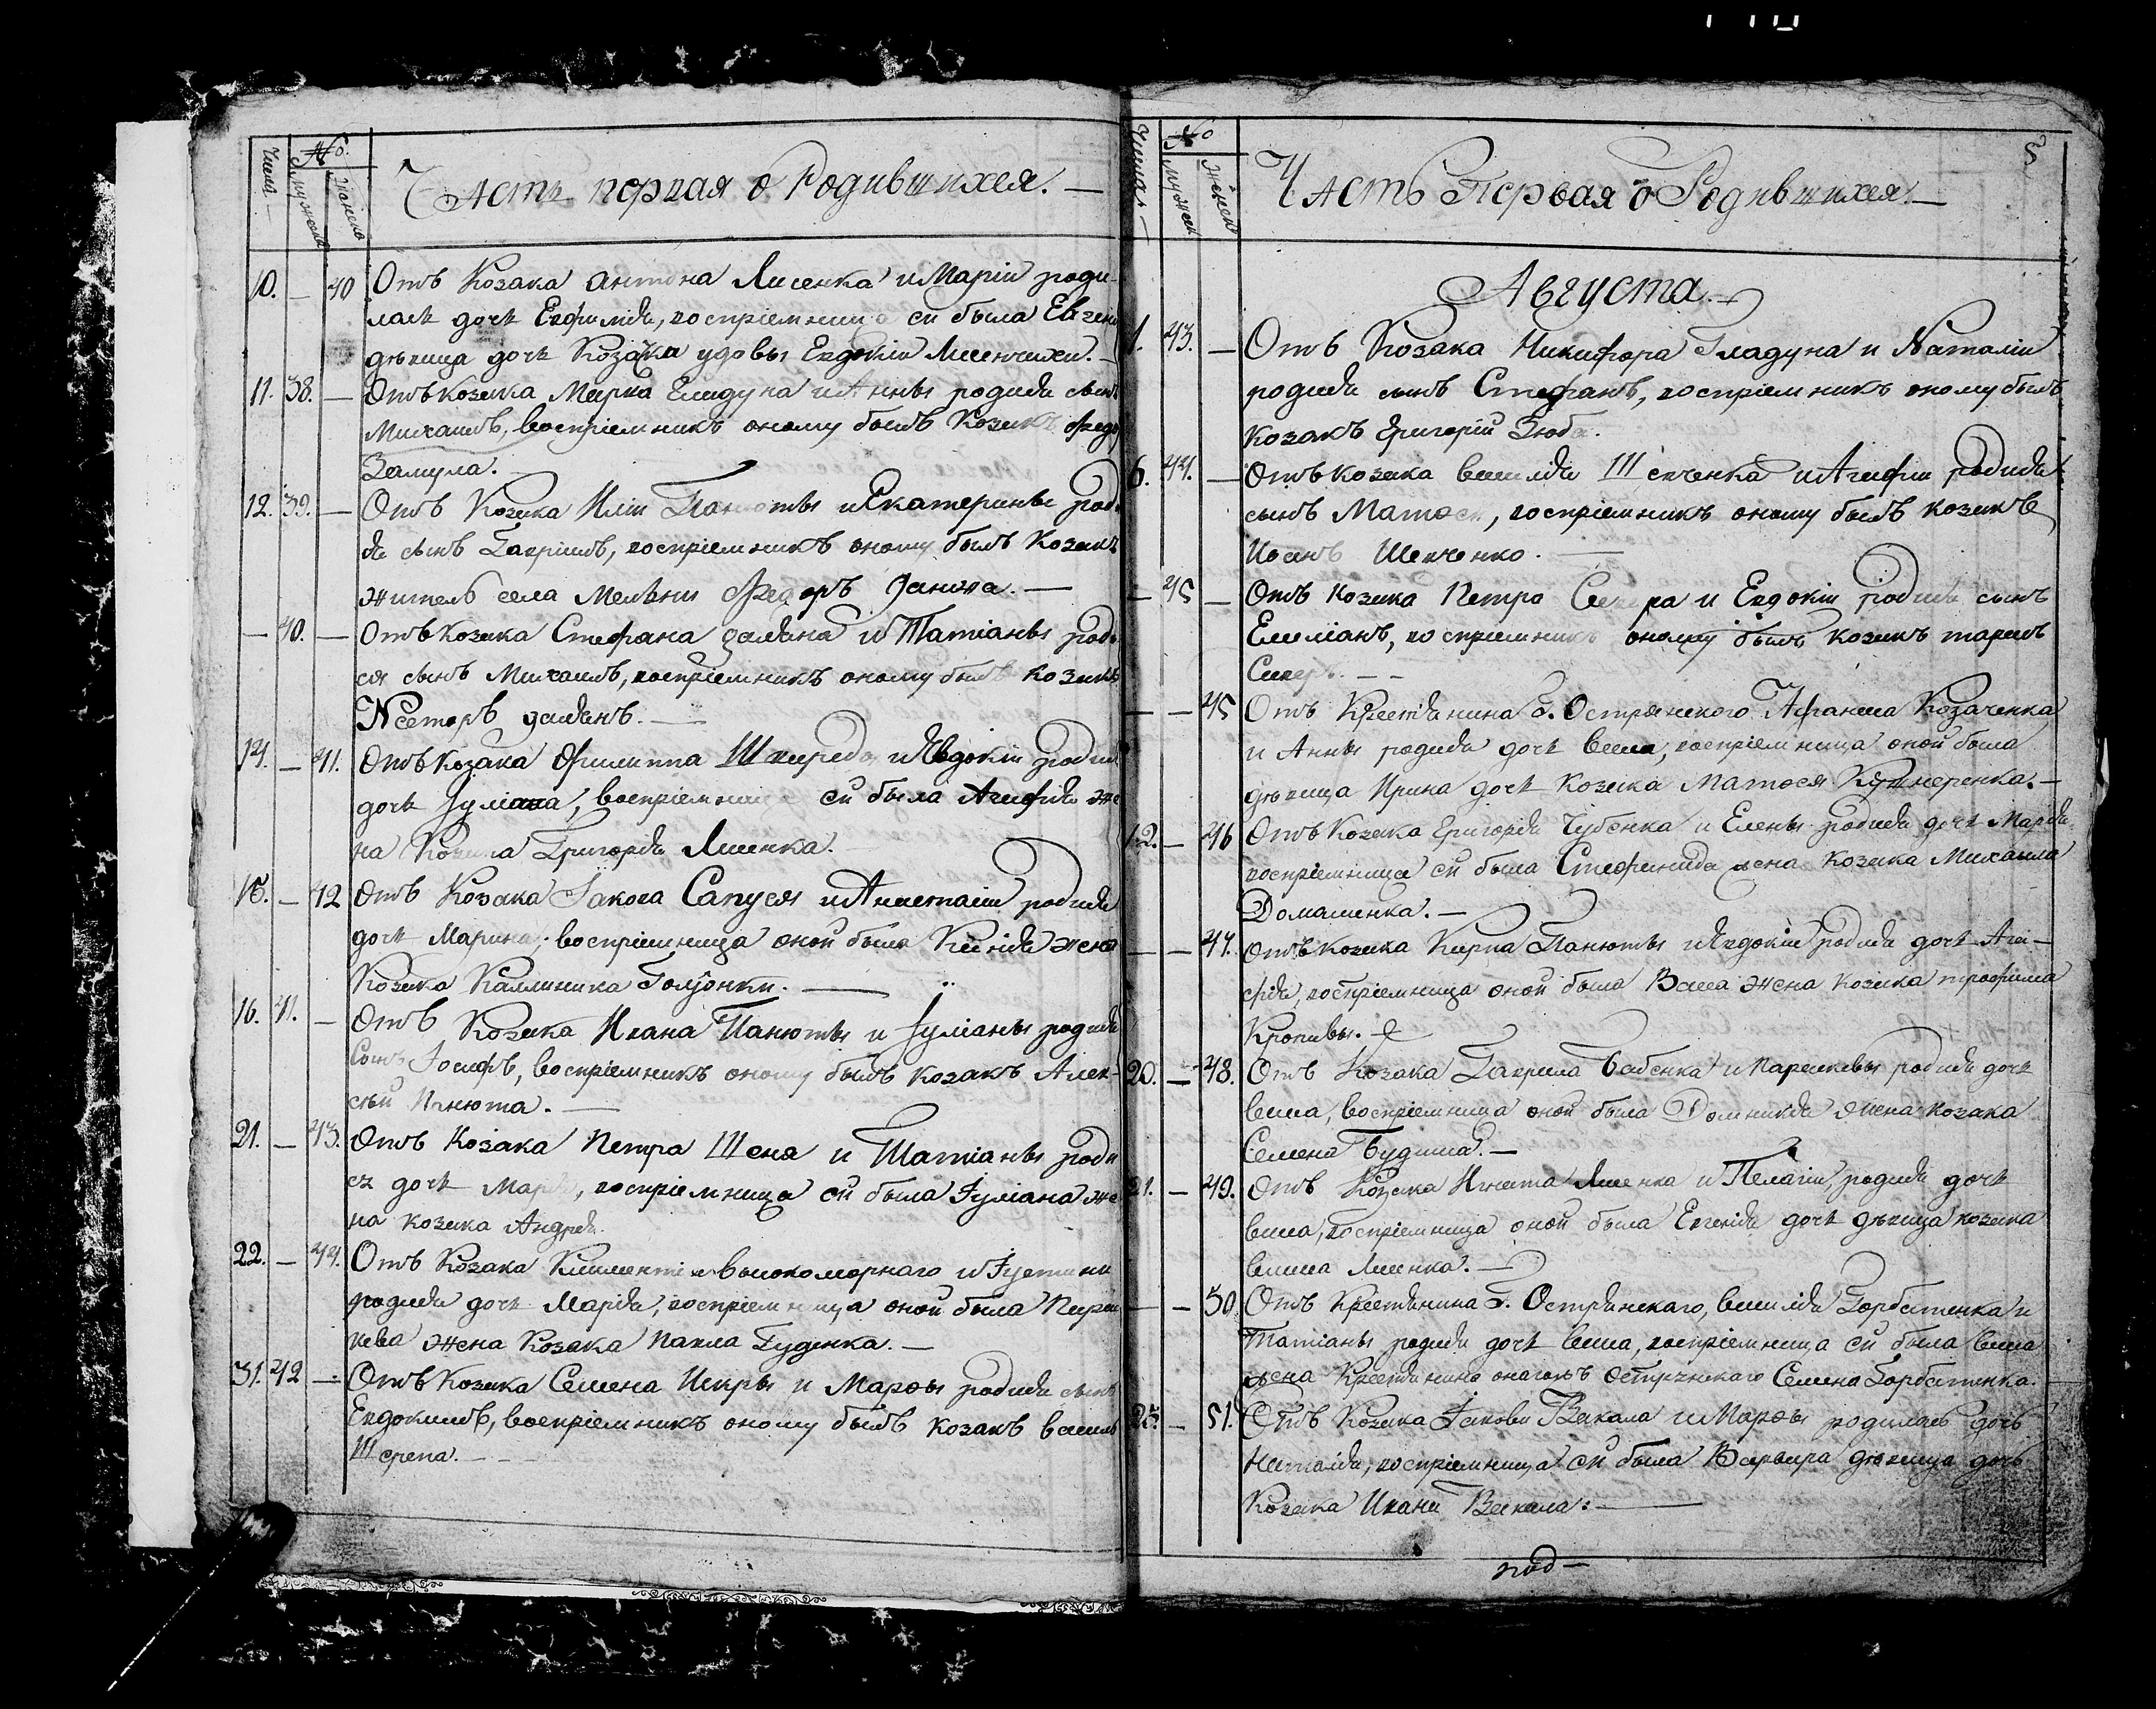 Числа
№
мужеска
Женска
Часть первая о Родившихся.
10. — 40 Отъ Козака Антона Лисенка и Маріи роди-
лась дочь Евфимія, воспріемница ей была Евгені
дѣвица дочь Козачки удовы Евдокіи Лисенчихи.
11. 38. — Отъ козака Марка и Анны родися сынъ
Михаилъ, воспріемникъ оному былъ Козакъ Федор
Замула.
12. 39. — Отъ Козака Иліи Панюты и Екатерины род
ся сынъ Гавріилъ, воспріемникъ оному былъ Козакъ
житель села Мельни Федоръ
— 40. — Отъ козака Стефана и Татіаны роди
ся сынъ Михаилъ, воспріемникъ оному былъ козакъ
Несторъ
14. — 41. Отъ Козака Филиппа и Евдокіи родися
дочь Іуліана, воспріемница ей была Агафія же
на Козака Григорія Лисенка.
15. — 42 Отъ Козака Іакова Сапуся и Анастасіи родися
дочь Марина, воспріемница оной была Ксенія жена
Козака Каллиника
16. 41. — Отъ Козака Ивана Панюты и Іуліаны родися
Сынъ Іосифъ, воспріемникъ оному былъ козакъ Алек-
сѣй Панюта.
21. — 43. Отъ Козака Петра и Татіаны роди
ся дочь Марія, воспріемница ей была Іуліана же
на козака Андрея.
22. — 44. Отъ Козака Климентія Высокоморнаго и Іустины
родися дочь Марія, воспріемница оной была Парас
кева жена Козака Павла Гуденка.
31. 42 — Отъ Козака Семена Искры и Марѳы родися сынъ
Евдокимъ, воспріемникъ оному былъ козакъ Василь
Числа
№
мужеск
Женска
Часть Первая о Родившихся
5
Августа
1. 43. — Отъ Козака Никифора Гладуна и Наталіи
родися сынъ Стефанъ, воспріемникъ оному былъ
козакъ Григорій Зюба.
6. 44. — Отъ козака Василія и Агафіи родися
сынъ Матвей, воспріемникъ оному былъ козакъ
Иванъ Шевченко.
— 45 — Отъ козака Петра и Евдокіи родися сынъ
Емиліанъ, воспріемникъ оному былъ козакъ
— — 45 Отъ Крестянина Г. Острянского Афанасія Козаченка
и Анны родися дочь Васса, воспріемница оной была
дѣвица Ирина дочь козака Матвея Кушнеренка.
12. — 46 Отъ Козака Григорія Чубенка и Елены родися дочь Марія
воспріемница ей была Стефанида жена козака Михаила
Домашенка.
— — 47. Отъ козака Карпа Панюты и Евдокіи родися дочь Ага-
фія, воспріемница оной была Васса жена козака трофима
Кропивы.
20. — 48. Отъ Козака Гаврила Бабенка и Параскевы родися дочь
Васса, воспріемница оной была Домникія жена козака
Семена
21. — 49. Отъ Козака Игната Лисенка и Пелагіи родися дочь
Васса, воспріемница оной была Евгенія дочь дѣвица козака
Лисенка.
— — 50 Отъ Крестянина Г. Острянскаго, Василія Горбатенка и
Татіаны родися дочь Васса, воспріемница ей была Васса
жена Крестянина онагожъ Острянскаго Семена Горбатенка.
25. — 51. Отъ Козака Іакова Вакала и Марѳы родилась дочь
Наталія, воспріемница ей была Варвара дѣвица дочь
Козака Ивана Вакала: